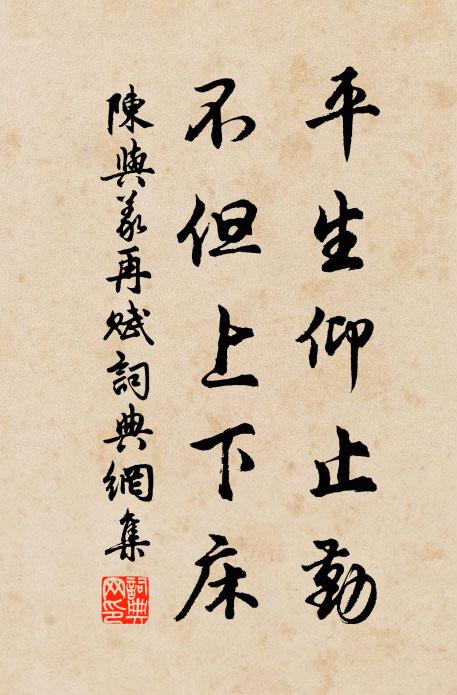 平生仰止勤
不但上下床
陳與義再賦詞典網集
詞典網印